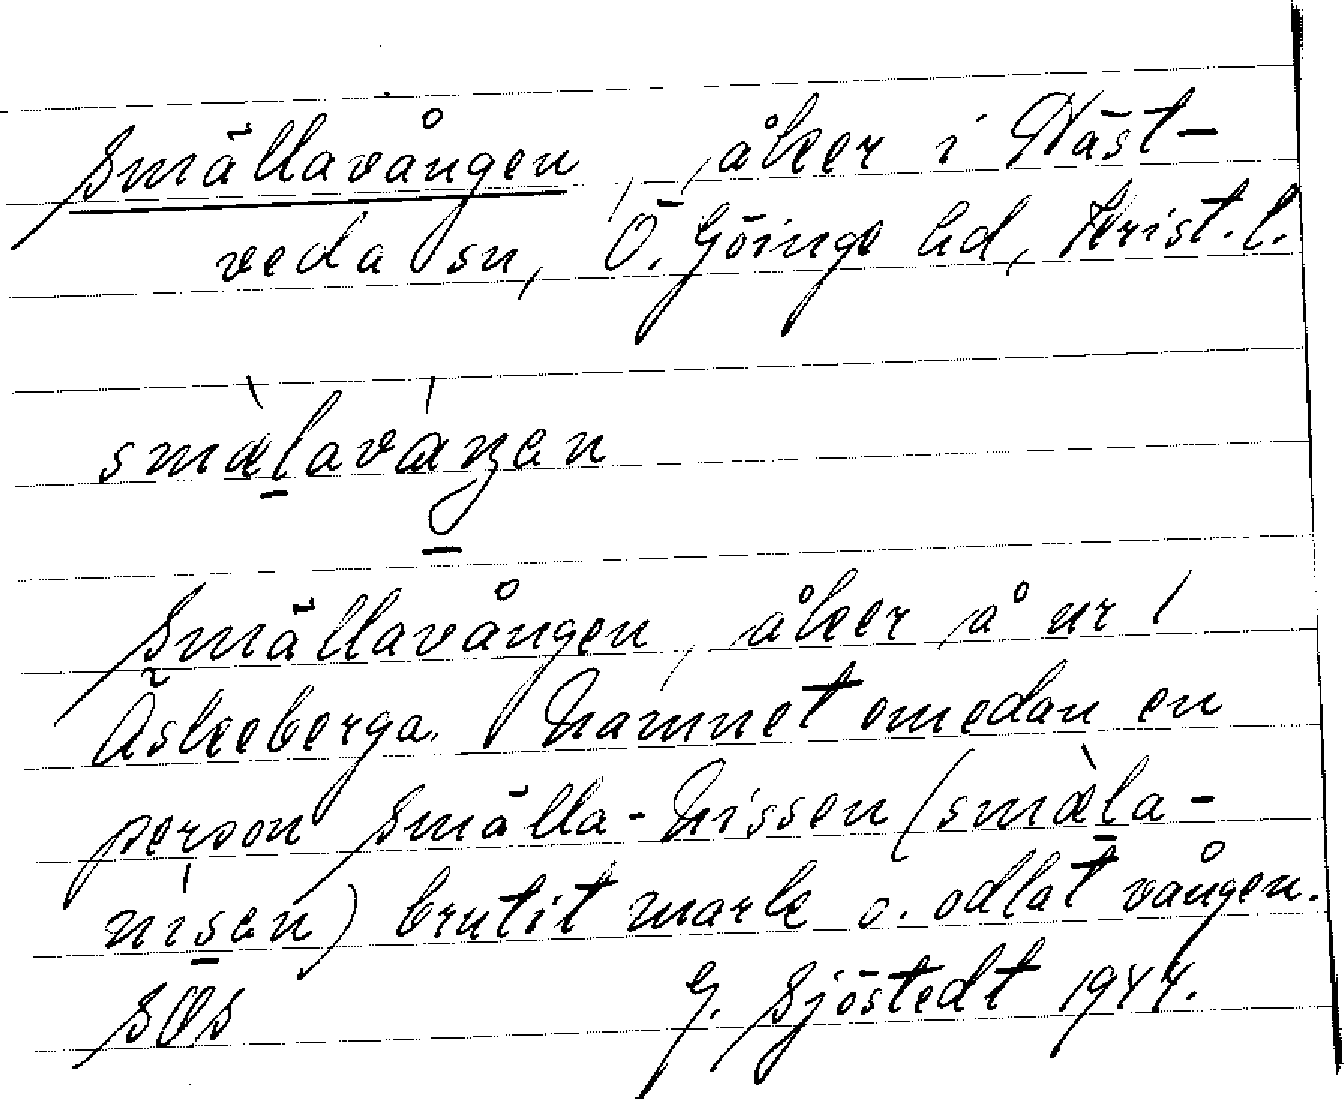 Smällavången, åker i Häst-
veda sn, Ö. Göinge hd, Krist. l.
smæ̀laváŋen
Smällavången, åker å nr 1
Äskeberga. Namnet emedan en
person Smälla-Nissen (smæ̀la-
nísen) brutit mark o. odlat vången.
SOS G. Sjöstedt 1944.